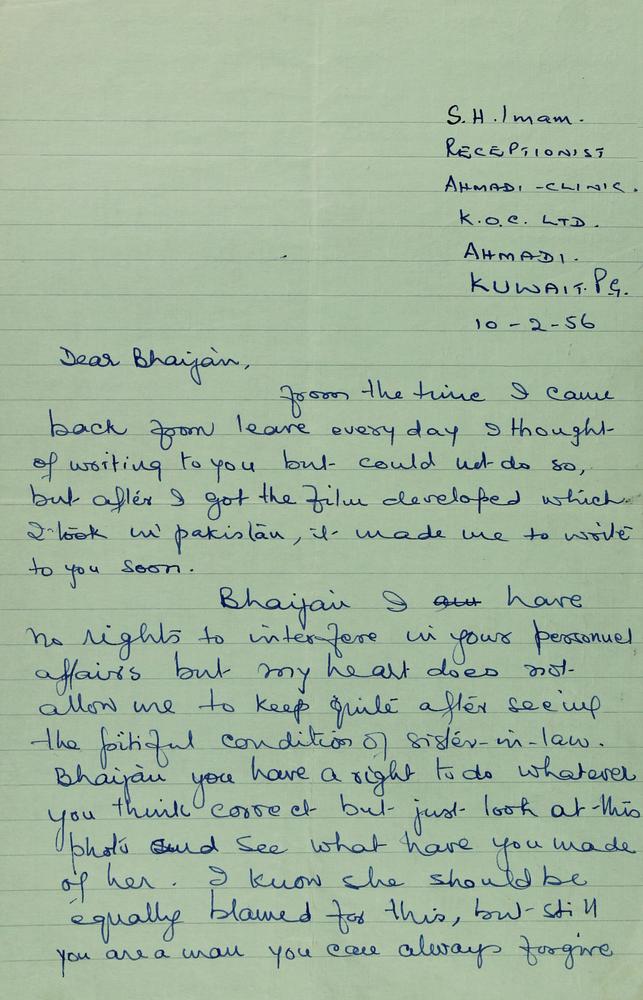 S.H. Imam.
RECEPTIONIST
AHMADI-CLINIC.
K.O.C. LTD.
AHMADI.
KUWAIT. P.G.
10-2-56
Dear Bhaijan,
from the time I came
back from leave every day I thought
of writing to you but could not do so,
but after I got the film developed which
I took in pakistan, it made me to write
to you soon.
Bhaijan I have
no rights to interfere in your personnel
affairs but my heart does not
allow me to keep quite after seeing
the pitiful condition of sister-in-law.
Bhaijan you have a right to do whatever
you think correct but just look at this
photo and see what have you made
of her. I know she should be
equally blamed for this, but still
you are a man you can always forgive